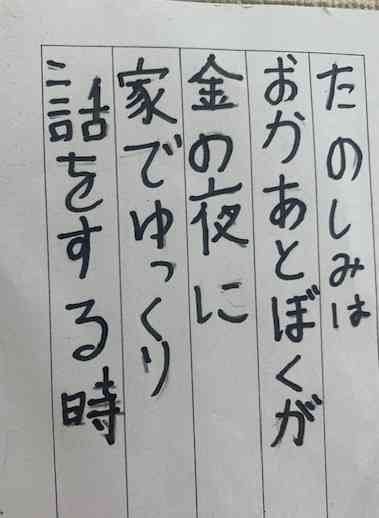 たのしみは
おかあとぼくが
金の夜に
家でゆっくり
話をする時